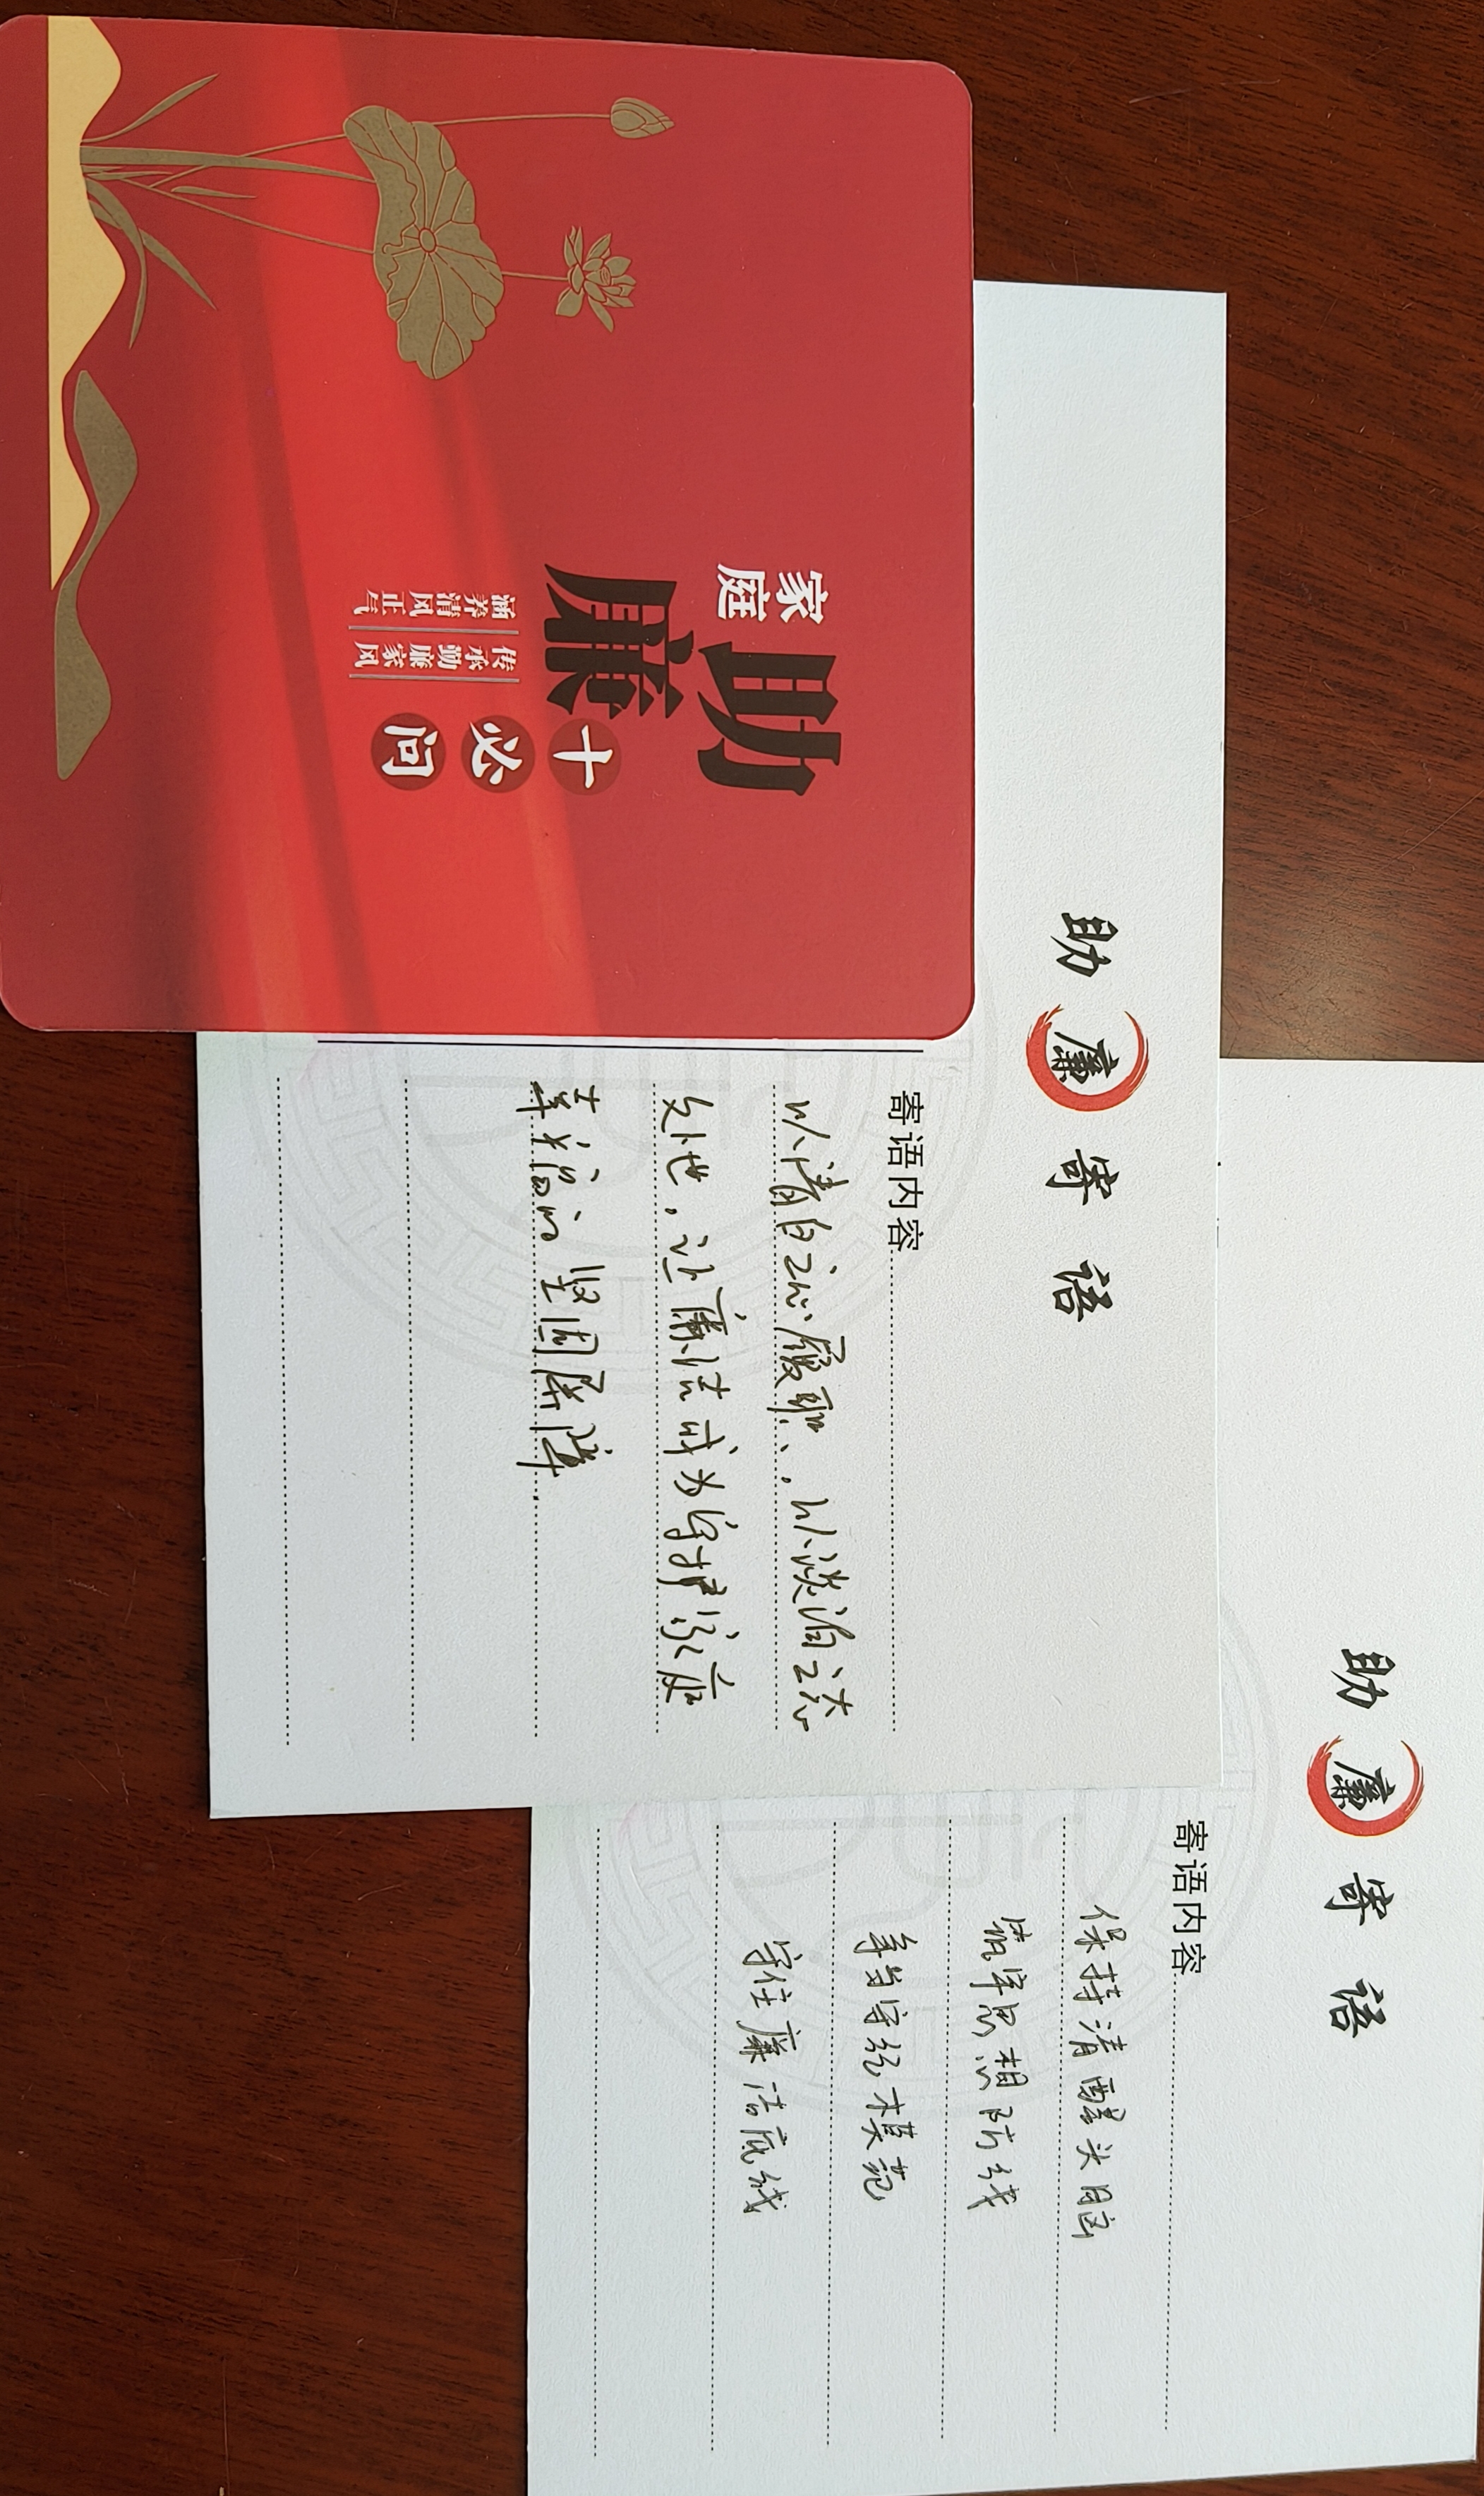 家庭
助廉
十必问
涵养清风正气
传承勤廉家风
助廉寄语
寄语内容
以清白之心履职、,以淡泊之志
处世,让廉洁成为守护家庭
幸福的坚固屏障.
助廉寄语
寄语内容
保持清醒头脑
筑牢思想防线
争当守纪模范
守住廉洁底线